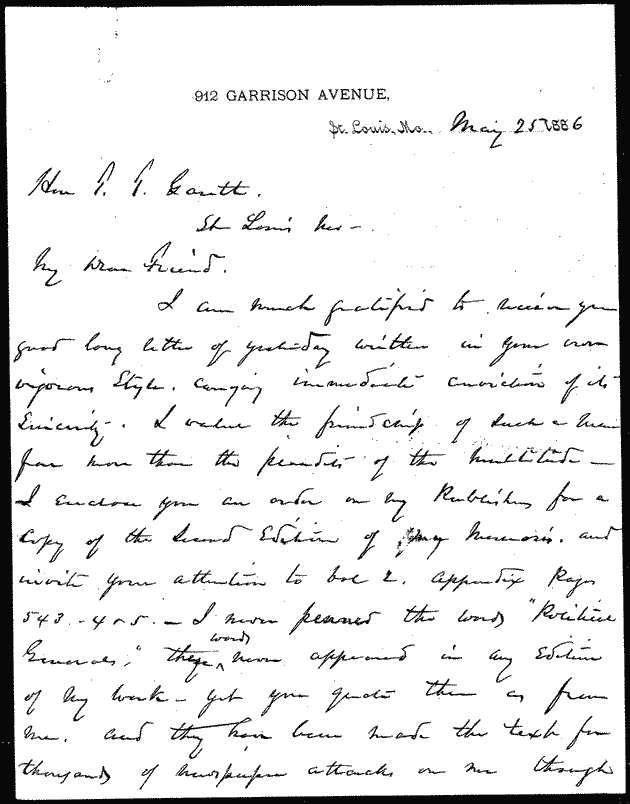 912 GARRISON AVENUE,
St. Louis, Mo., May 25 1886
Hon T. T. Gantt.
St Louis Mo -
My Dear Friend.
I am much gratified to receive your
good long letter of yesterday written in your own
vigorous Style. Carrying immediate conviction of its
Sincerity. I value the friendship of such a man
far more than the plaudits of the Multitude -
I enclose you an order on my Publishers for a
Copy of the Second Edition of my Memoirs. and
invite your attention to vol 2. appendix Page
543 - 4 & 5. - I never penned the words "Political
Generals," these words never appeared in any Edition
of my work - yet you quote them as from
me. and they have been made the text for
thousands of newspaper attacks on me through